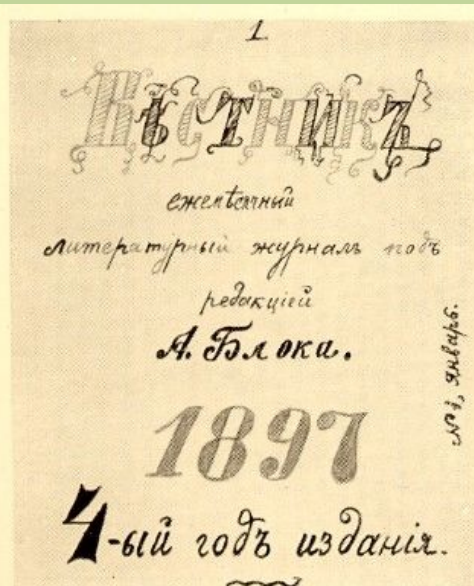 1
Вѣстникъ
ежемѣсячный
литературный журналъ подъ
редакціей
А. Блока.
№ 1, январь.
1897
4-ый годъ изданія.